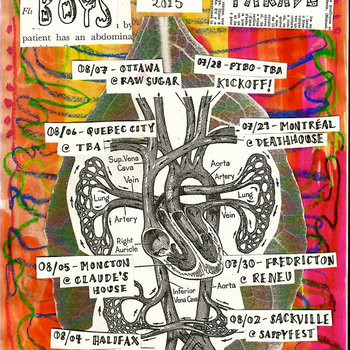 BOYS
2015
PARADE
patient has an abdomina
08/07 - OTTAWA
@ RAW SUGAR
07/28 - PTBO - TBA
KICKOFF!
08/06 - QUEBEC CITY
@ TBA
07/29 - MONTRÉAL
@ DEATHHOUSE
Sup. Vena
Cava
Vein
Aorta
Artery
Vein
Lung
Lung
Artery
Right
Auricle
08/05 - MONCTON
@ CLAUDE'S
HOUSE
07/30 - FREDRICTON
@ RENEU
Inferior
Vena Cava
Aorta
08/02 - SACKVILLE
@ SAPPYFEST
08/04 - HALIFAX